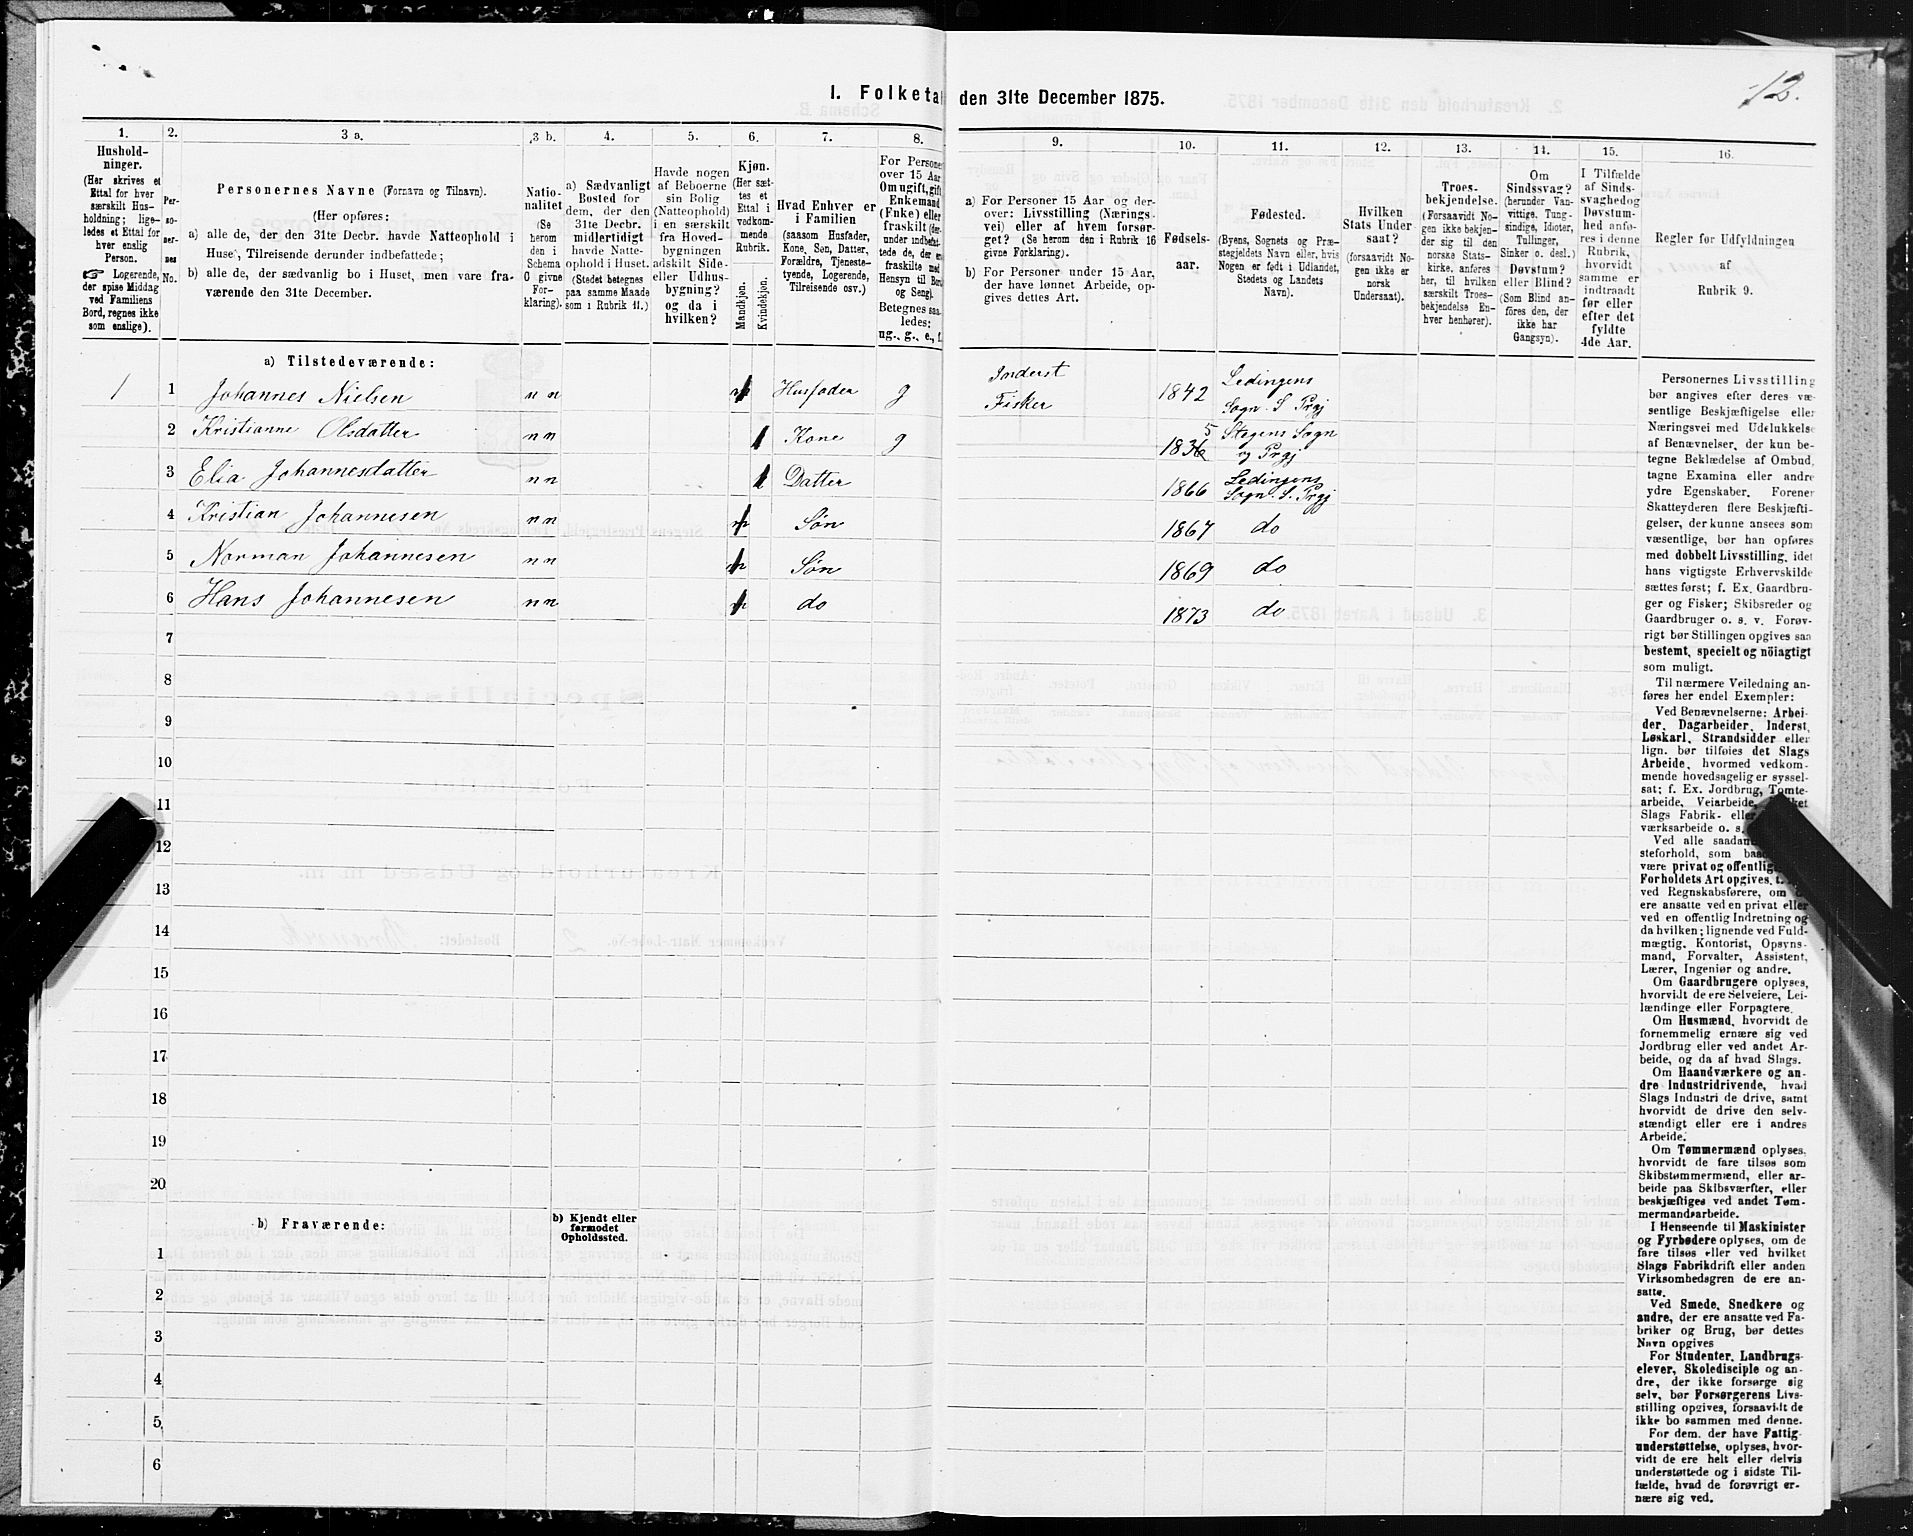 12.
I. Folketal den 31te December 1875.
1. 2. 3 a. 3 b. 4. 5. 6. 7. 8. 9. 10. 11. 12. 13. 14. 15. 16.
Hushold-
ninger.
(Her skrives et
Ettal for hver
særskilt Hus-
holdning; lige-
ledes et Ettal for
hver enslig
Person.
☞ Logerende,
der spise Middag
ved Familiens
Bord, regnes ikke
som enslige).
Per-
so-
ner-
nes
No.
Personernes Navne (Fornavn og Tilnavn).
(Her opføres:
a) alle de, der den 31te Decbr. havde Natteophold i
Huset, Tilreisende derunder indbefattede;
b) alle de, der sædvanlig bo i Huset, men vare fra-
værende den 31te December.
Natio-
nalitet
(Se
herom
den i
Schema
O givne
For-
klaring).
a) Sædvanligt
Bosted for
dem, der den
31te Decbr.
midlertidigt
havde Natte-
ophold i Huset.
(Stedet betegnes
paa samme Maade
som i Rubrik 11.)
Havde nogen
af Beboerne
sin Bolig
(Natteophold)
i en særskilt
fra Hoved-
bygningen
adskilt Side-
eller Udhus-
bygning?
og da i
hvilken?
Kjøn.
(Her sæt-
tes et
Ettal i
vedkom-
mende
Rubrik.
Mandkjøn.
Kvindekjøn.
Hvad Enhver er
i Familien
(saasom Husfader,
Kone, Søn, Datter,
Forældre, Tjeneste-
tyende, Logerende,
Tilreisende osv.)
For Personer
over 15 Aar
Om ugift, gift
Enkemand
(Enke) eller
fraskilt (der-
under indbefat-
tede de, der ere
fraskilte med
Hensyn til Bord
og Seng).
Betegnes saa-
ledes:
ug., g., e., f.
a) For Personer 15 Aar og der-
over: Livsstilling (Nærings-
vei) eller af hvem forsør-
get? (Se herom den i Rubrik 16
givne Forklaring).
b) For Personer under 15 Aar,
der have lønnet Arbeide, op-
gives dettes Art.
Fødsels-
aar.
Fødested.
(Byens, Sognets og Præ-
stegjeldets Navn eller, hvis
Nogen er født i Udlandet,
Stedets og Landets
Navn).
Hvilken
Stats Under
saat?
(forsaavidt No-
gen ikke er
norsk
Undersaat).
Troes-
bekjendelse.
(Forsaavidt No-
gen ikke bekjen-
der sig til den
norske Stats-
kirke, anføres
her, til hvilken
særskilt Troes-
bekjendelse En-
hver henhører).
Om
Sindssvag?
(herunder Van-
vittige, Tung-
sindige, Idioter,
Tullinger,
Sinker o. desl.)
Døvstum?
eller Blind?
(Som Blind an-
føres den, der
ikke har
Gangsyn).
I Tilfælde
af Sinds-
svaghed og
Døvstum-
hed anfø-
res i denne
Rubrik,
hvorvidt
samme er
indtraadt
før eller
efter det
fyldte
4de Aar.
Regler for Udfyldningen
af
Rubrik 9.
a) Tilstedeværende:
1 1 Johannes Nielsen n n Husfader g Inderst Fisker 1842 Ledingens Sogn. S Prgj
2 Kristianne Olsdatter n n 1 Kone g 1836 5 Stegens Sogn og Prgj
3 Elia Johannesdatter n n 1 Datter 1866 Ledingens Sogn. S. Prgj
4 Kristian Johannesen n n Søn 1867 do
5 Norman Johannesen n n Søn 1869 do
6 Hans Johannesen n n do 1873 do
7
8
9
10
11
12
13
14
15
16
17
18
19
20
b) Fraværende:
b) Kjendt eller
formodet
Opholdssted.
1
2
3
4
5
6
Personernes Livsstilling
bør angives efter deres væ-
sentlige Beskjæftigelse eller
Næringsvei med Udelukkelse
af Benævnelser, der kun be-
tegne Beklædelse af Ombud,
tagne Examina eller andre
ydre Egenskaber. Forener
Skatteyderen flere Beskjæfti-
gelser, der kunne ansees som
væsentlige, bør han opføres
med dobbelt Livsstilling, idet
hans vigtigste Erhvervskilde
sættes først; f. Ex. Gaardbru-
ger og Fisker; Skibsreder og
Gaardbruger o. s. v. Forøv-
rigt bør Stillingen opgives saa
bestemt, specielt og nöiagtigt
som muligt.
Til nærmere Veiledning an-
føres her endel Exempler:
Ved Benævnelserne: Arbei-
der, Dagarbeider, Inderst,
Løskarl, Strandsidder eller
lign. bør tilføies det Slags
Arbeide, hvormed vedkom-
mende hovedsagelig er syssel-
sat; f. Ex. Jordbrug, Tomte-
arbeide, Veiarbeide,
Slags Fabrik- eller
værksarbeide o. s.
Ved alle saadan
steforhold, som
være privat og offentlig
Forholdets Art opgives,
ved Regnskabsførere, om
ere ansatte ved en privat eller
ved en offentlig Indretning og
da hvilken; lignende ved Fuld-
mægtig, Kontorist, Opsyns-
mand, Forvalter, Assistent,
Lærer, Ingeniør og andre.
Om Gaardbrugere oplyses,
hvorvidt de ere Selveiere, Lei-
lændinge eller Forpagtere.
Om Husmænd, hvorvidt de
fornemmelig ernære sig ved
Jordbrug eller ved andet Ar-
beide, og da af hvad Slags.
Om Haandværkere og an-
dre Industridrivende, hvad
Slags Industri de drive, samt
hvorvidt de drive den selv-
stændigt eller ere i andres
Arbeide.
Om Tømmermænd oplyses,
hvorvidt de fare tilsøs som
Skibstømmermænd, eller ar-
beide paa Skibsværfter, eller
beskjæftiges ved andet Tøm-
mermandsarbeide.
I Henseende til Maskinister
og Fyrbødere oplyses, om de
fare tilsøs eller ved hvilket
Slags Fabrikdrift eller anden
Virksomhedsgren de ere an-
satte.
Ved Smede, Snedkere og
andre, der ere ansatte ved Fa-
briker og Brug, bør dettes
Navn opgives
For Studenter, Landbrugs-
elever, Skoledisciple og an-
dre, der ikke forsørge sig
selv, bør Forsørgerens Livs-
stilling opgives, forsaavidt de
ikke bo sammen med denne.
For dem, der have Fattig-
understøttelse, oplyses, hvor-
vidt de ere helt eller delvis
understøttede og i sidste Til-
fælde, hvad de forøvrigt er-
nære sig ved.